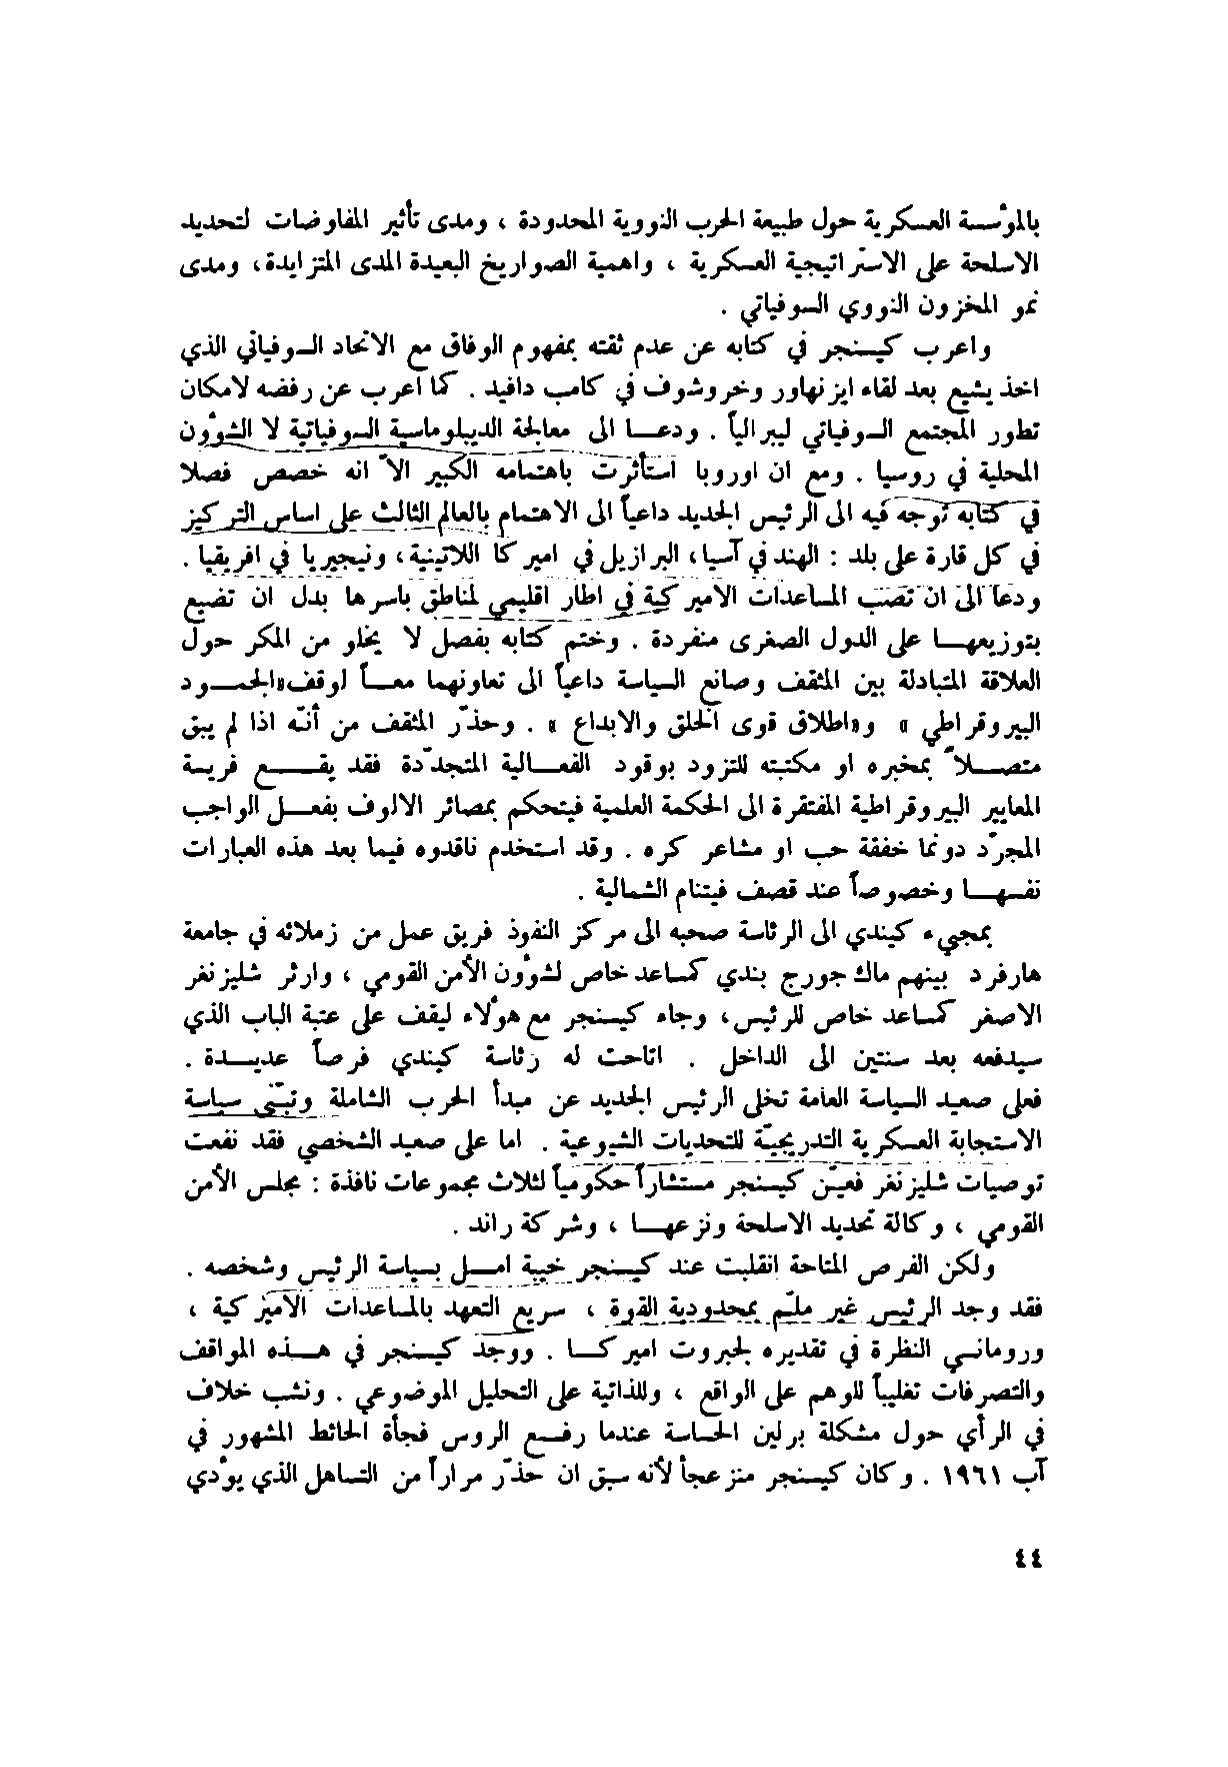 بالمؤسسة العسكرية حول طبيعة الحرب النووية المحدودة ، ومدى تأثير المفاوضات لتحديد
الاسلحة على الاستراتيجية العسكرية ، واهمية الصواريخ البعيدة المدى المتزايدة، ومدى
نمو المخزون النووي السوفياتي .
واعرب كيسنجر في كتابه عن عدم ثقته بمفهوم الوفاق مع الاتحاد السوفياتي الذي
اخذ يشيع بعد لقاء ايزنهاور وخروشوف في كامب دافيد . كما اعرب عن رفضه لامكان
تطور المجتمع السوفياتي ليبرالياً . ودعــا الى معالجة الديبلوماسية السوفياتية لا الشؤون
المحلية في روسيا . ومع ان اوروبا استأثرت باهتمامه الكبير الاّ انه خصص فصلا
في كتابه توجه فيه الى الرئيس الجديد داعياً الى الاهتمام بالعالم الثالث على اساس التركيز
في كل قارة على بلد : الهند في آسيا، البرازيل في اميركا اللاتينية، ونيجيريا في افريقيا .
ودعا الى ان تصب المساعدات الاميركية في اطار اقليمي لمناطق باسرها بدل ان تضيع
بتوزيعهــا على الدول الصغرى منفردة . وختم كتابه بفصل لا يخلو من المكر حول
العلاقة المتبادلة بين المثقف وصانع السياسة داعياً الى تعاونهما معــاً لوقف«الجمــود
البيروقراطي » و«اطلاق قوى الخلق والابداع » . وحذّر المثقف من أنّه اذا لم يبق
متصــلاً بمخبره او مكتبته للتزود بوقود الفعــالية المتجدّدة فقد يقــع فريسة
المعايير البيروقراطية المفتقرة الى الحكمة العلمية فيتحكم بمصائر الالوف بفعــل الواجب
المجرّد دونما خفقة حب او مشاعر كره . وقد استخدم ناقدوه فيما بعد هذه العبارات
نفسهــا وخصوصاً عند قصف فيتنام الشمالية .
بمجيء كيندي الى الرئاسة صحبه الى مركز النفوذ فريق عمل من زملائه في جامعة
هارفرد بينهم ماك جورج بندي كمساعد خاص لشؤون الأمن القومي ، وارثر شليزنغر
الاصغر كمساعد خاص للرئيس، وجاء كيسنجر مع هؤلاء ليقف على عتبة الباب الذي
سيدفعه بعد سنتين الى الداخل . اتاحت له رئاسة كيندي فرصاً عديــدة .
فعلى صعيد السياسة العامة تخلى الرئيس الجديد عن مبدأ الحرب الشاملة وتبنّى سياسة
الاستجابة العسكرية التدريجيّة للتحديات الشيوعية . اما على صعيد الشخصي فقد نفعت
توصيات شليزنغر فعيّن كيسنجر مستشاراً حكومياً لثلاث مجموعات نافذة : مجلس الأمن
القومي ، وكالة تحديد الاسلحة ونزعهــا ، وشركة راند .
ولكن الفرص المتاحة انقلبت عند كيسنجر خيبة امــل بسياسة الرئيس وشخصه .
فقد وجد الرئيس غير ملمّ بمحدودية القوة ، سريع التعهد بالمساعدات الاميركية ،
ورومانسي النظرة في تقديره لجبروت اميركــا . ووجد كيسنجر في هــذه المواقف
والتصرفات تغليباً للوهم على الواقع ، وللذاتية على التحليل الموضوعي . ونشب خلاف
في الرأي حول مشكلة برلين الحساسة عندما رفــع الروس فجأة الحائط المشهور في
آب ١٩٦١ . وكان كيسنجر منزعجاً لأنه سبق ان حذّر مراراً من التساهل الذي يؤدي
٤٤